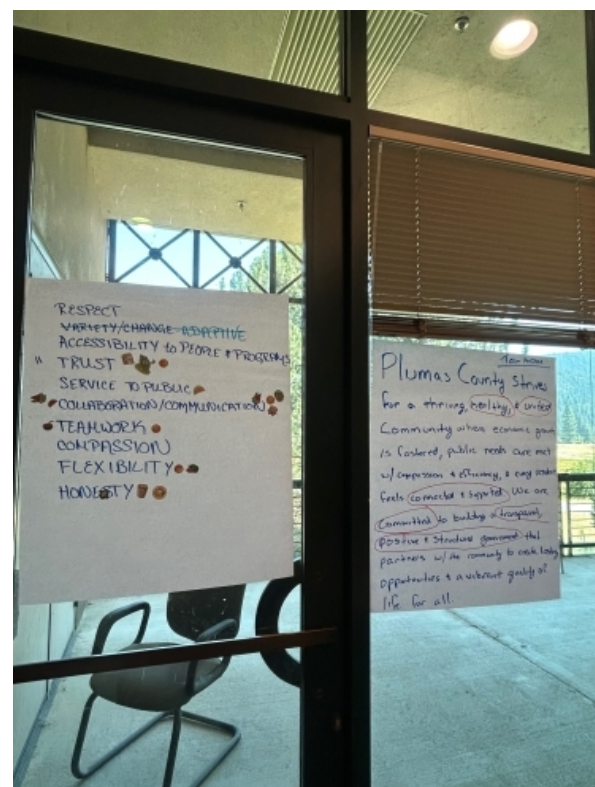 RESPECT
VARIETY/CHANGE ADAPTIVE
ACCESSIBILITY to PEOPLE & PROGRAMS
" TRUST
SERVICE TO PUBLIC
COLLABORATION/COMMUNICATION
TEAMWORK
COMPASSION
FLEXIBILITY
HONESTY
Plumas County Strives
for a thriving, healthy, & unified
Community where economic growth
is fostered, public needs are met
w/ compassion & efficiency, & every resident
feels connected & supported. We are
Committed to building a transparent,
positive & structured government that
partners w/ the community to create lasting
opportunities & a vibrant quality of
life for all.